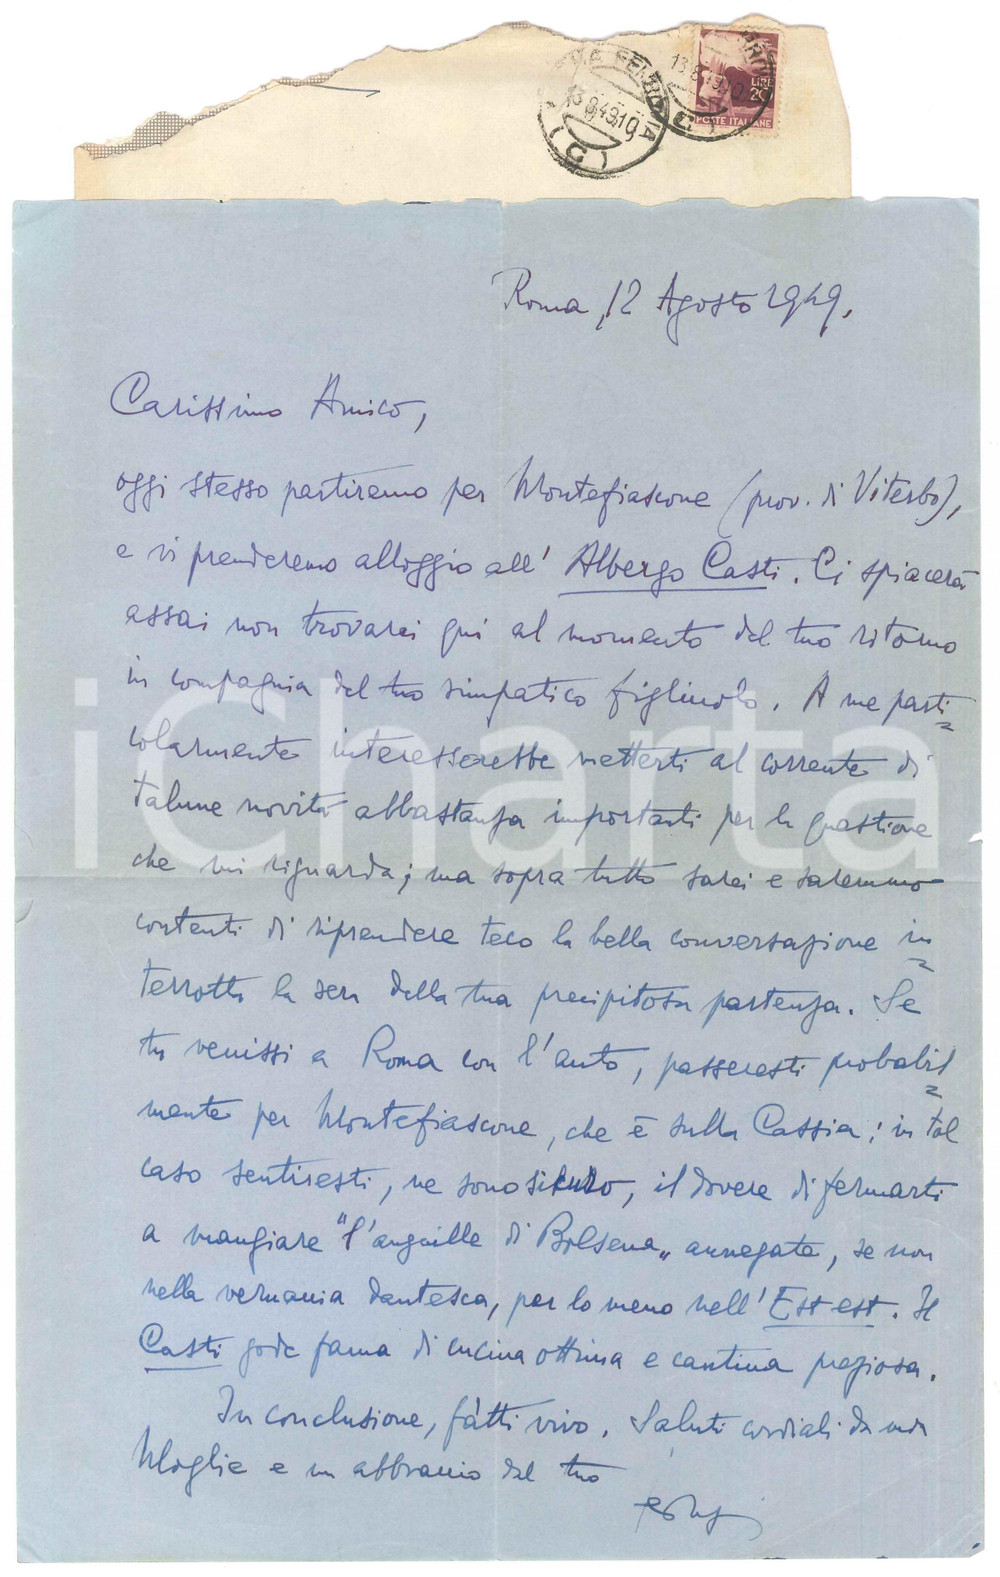 13.8.49.10
LIRE
20
POSTE ITALIANE
13 8 49 10
FERROVIA
(C)
Roma, 12 Agosto 1949.
Carissimo Amico,
oggi stesso partiremo per Montefiascone (prov. di Viterbo),
e vi prenderemo alloggio all' Albergo Casti. Ci spiacerà
assai non trovarci qui al momento del tuo ritorno
in compagnia del tuo simpatico figliuolo. A me parti=
colarmente interesserebbe metterti al corrente di
talune novità abbastanza importanti per la questione
che mi riguarda; ma sopra tutto sarei e saremmo
contenti di riprendere teco la bella conversazione in=
terrotta la sera della tua precipitosa partenza. Se
tu venissi a Roma con l'auto, passeresti probabil=
mente per Montefiascone, che è sulla Cassia; in tal
caso sentiresti, ne sono sicuro, il dovere di fermarti
a mangiare "l'anguille di Bolsena„ annegate, se non
nella vernaccia dantesca, per lo meno nell'Est est. Il
Casti gode fama di cucina ottima e cantina pregiosa.
In conclusione, fatti vivo. Saluti cordiali da mia
Moglie e un abbraccio dal tuo
iCharta